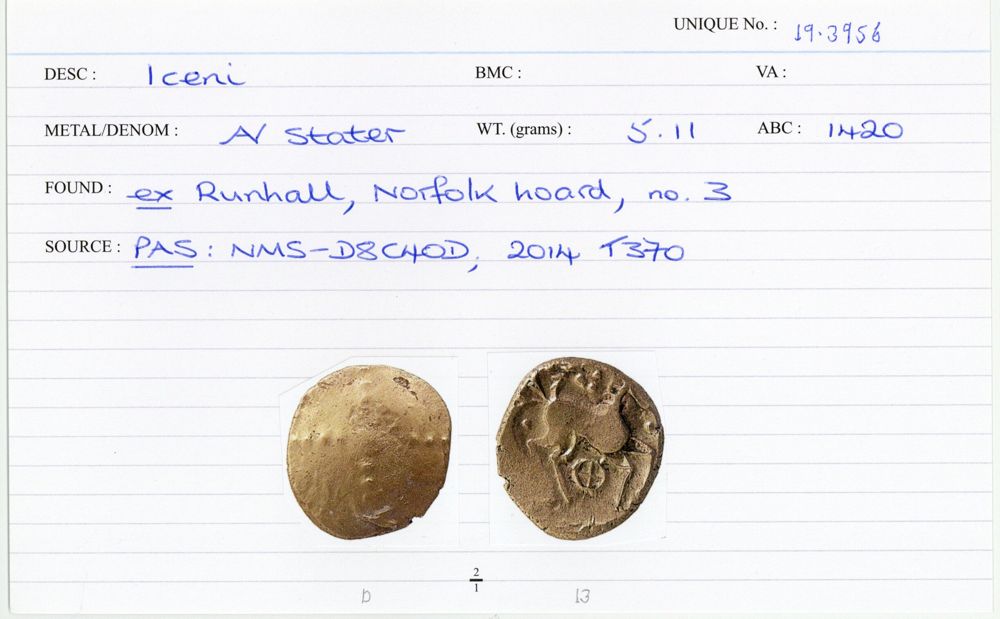 UNIQUE No. : 19.3956
DESC : Iceni BMC : VA :
METAL/DENOM : AV Stater WT. (grams) : 5.11 ABC : 1420
FOUND : ex Runhall, Norfolk hoard, no. 3
SOURCE : PAS : NMS-D8C40D, 2014 T370
2
1
D 13